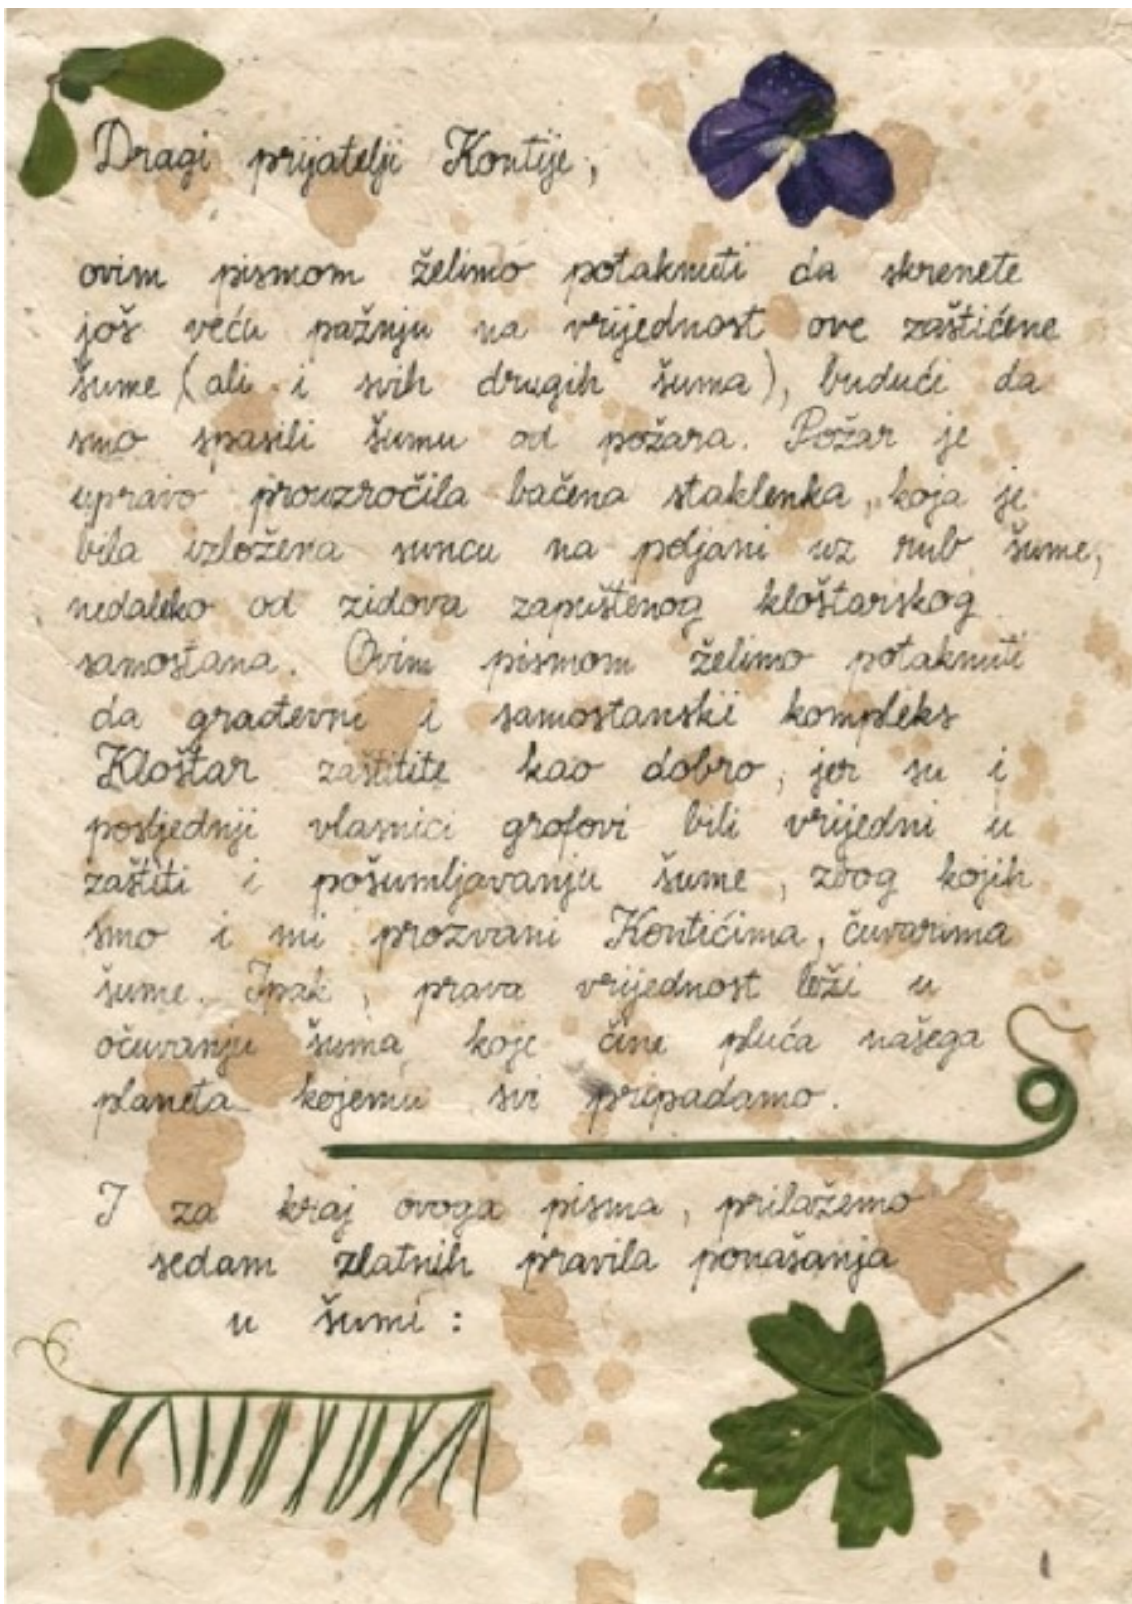 Dragi prijatelji Kontije,
ovim pismom želimo potaknuti da skrenete
još veću pažnju na vrijednost ove zaštićene
šume (ali i svih drugih šuma), budući da
smo spasili šumu od požara. Požar je
upravo prouzročila bačena staklenka, koja je
bila izložena suncu na poljani uz rub šume,
nedaleko od zidova zapuštenog kloštarskog
samostana. Ovim pismom želimo potaknuti
da građevni i samostanski kompleks
Kloštar zaštitite kao dobro, jer su i
posljednji vlasnici grofovi bili vrijedni u
zaštiti i pošumljavanju šume, zbog kojih
smo i mi prozvani Kontićima, čuvarima
šume. Ipak, prava vrijednost leži u
očuvanju šuma koje čine pluća našega
planeta kojemu svi pripadamo.
I za kraj ovoga pisma, prilažemo
sedam zlatnih pravila ponašanja
u šumi:
1